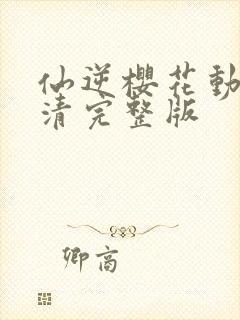 仙逆樱花動
清完整版
卿高